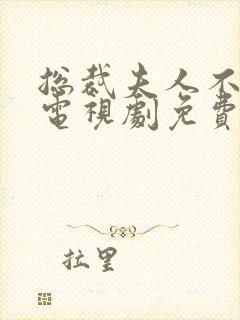 总裁夫人不
電視劇免費
拉里